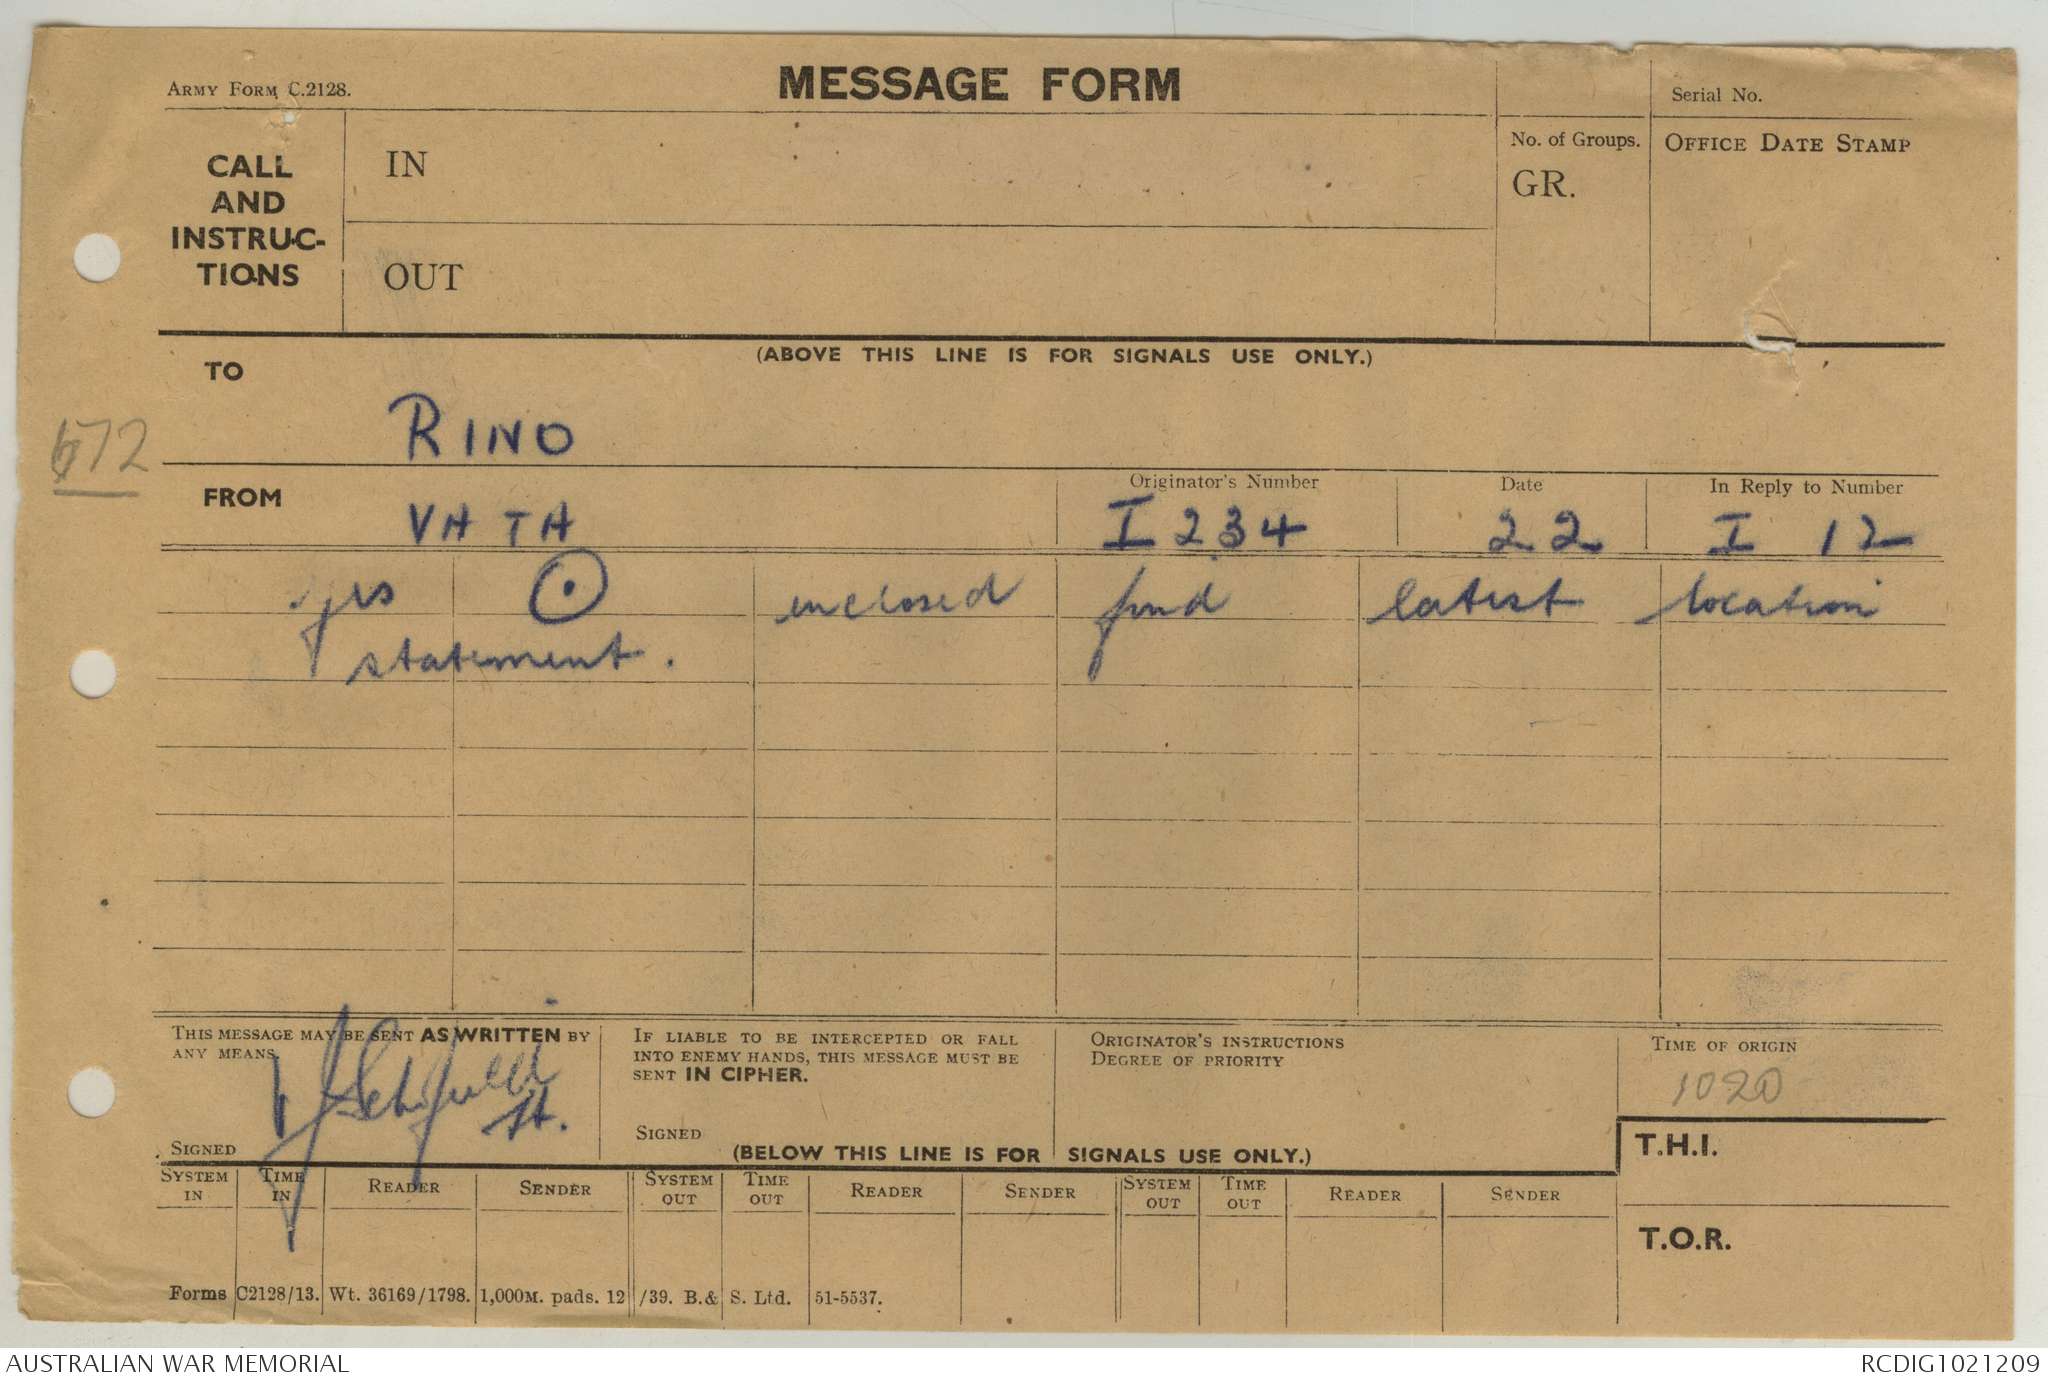 ARMY FORM C.2128.
MESSAGE FORM
Serial No.
CALL AND INSTRUC-TIONS
IN
OUT
No. of Groups.
GR.
OFFICE DATE STAMP
(ABOVE THIS LINE IS FOR SIGNALS USE ONLY.)
TO
RINO
672
FROM
VATA
Originator's Number
I 234
Date
22
In Reply to Number
I 12
yes ⊙ enclosed find latest location
statement.
THIS MESSAGE MAY BE SENT AS WRITTEN BY
ANY MEANS.
SIGNED
Lt.
IF LIABLE TO BE INTERCEPTED OR FALL
INTO ENEMY HANDS, THIS MESSAGE MUST BE
SENT IN CIPHER.
SIGNED
ORIGINATOR'S INSTRUCTIONS
DEGREE OF PRIORITY
TIME OF ORIGIN
1020
(BELOW THIS LINE IS FOR SIGNALS USE ONLY.)
T.H.I.
T.O.R.
SYSTEM IN TIME IN READER SENDER SYSTEM OUT TIME OUT READER SENDER SYSTEM OUT TIME OUT READER SENDER
Forms C2128/13. Wt. 36169/1798. 1,000M. pads. 12/39. B.& S. Ltd. 51-5537.
AUSTRALIAN WAR MEMORIAL
RCDIG1021209